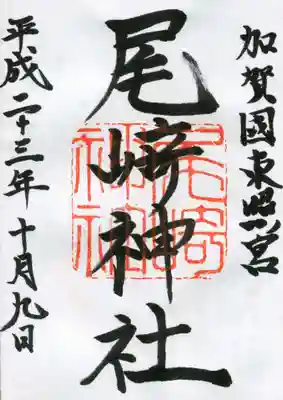 加賀國東照宮
尾﨑神社
平成二十三年十月九日
尾崎
神社